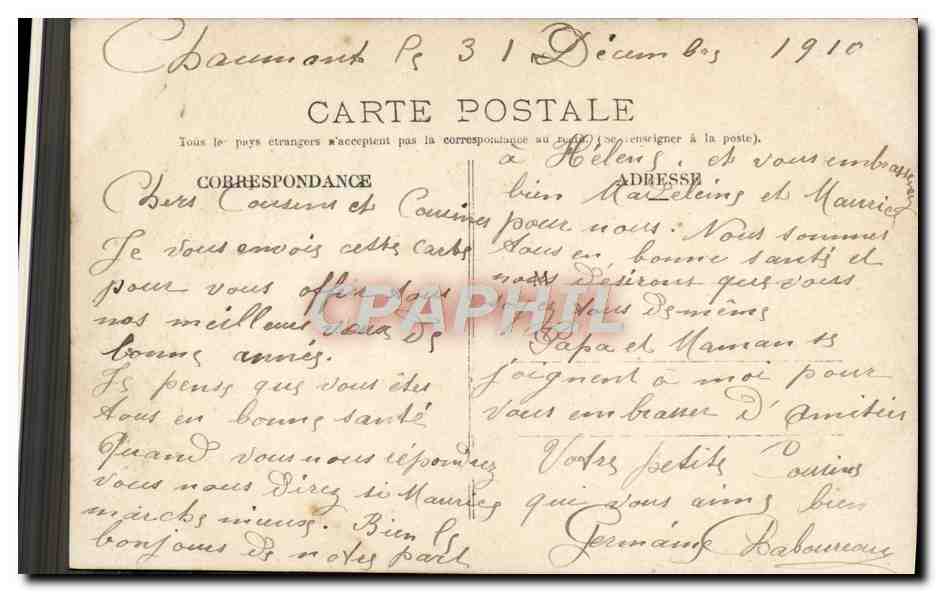 Chaumont le 31 Décembre 1910
CARTE POSTALE
Tous les pays etrangers n'acceptent pas la correspondance au recto. (Se renseigner à la poste).
CORRESPONDANCE
Chers Cousins et Cousines
Je vous envois cette carte
pour vous offrir tous
nos meilleurs vœux de
bonne année.
Je pense que vous êtes
tous en bonne santé
Quand vous nous répondrez
vous nous direz si Maurice
marche mieux. Bien le
bonjours de notre part
ADRESSE
à Hélène, et vous embrasserez
bien Madeleine et Maurice
pour nous. Nous sommes
tous en bonne santé et
nous désirons que vous
tous de même
Papa et Maman se
joignent a moi pour
vous embrasser d'amitiés
Votre petite Cousine
qui vous aime bien
Germaine
CPAPHIL